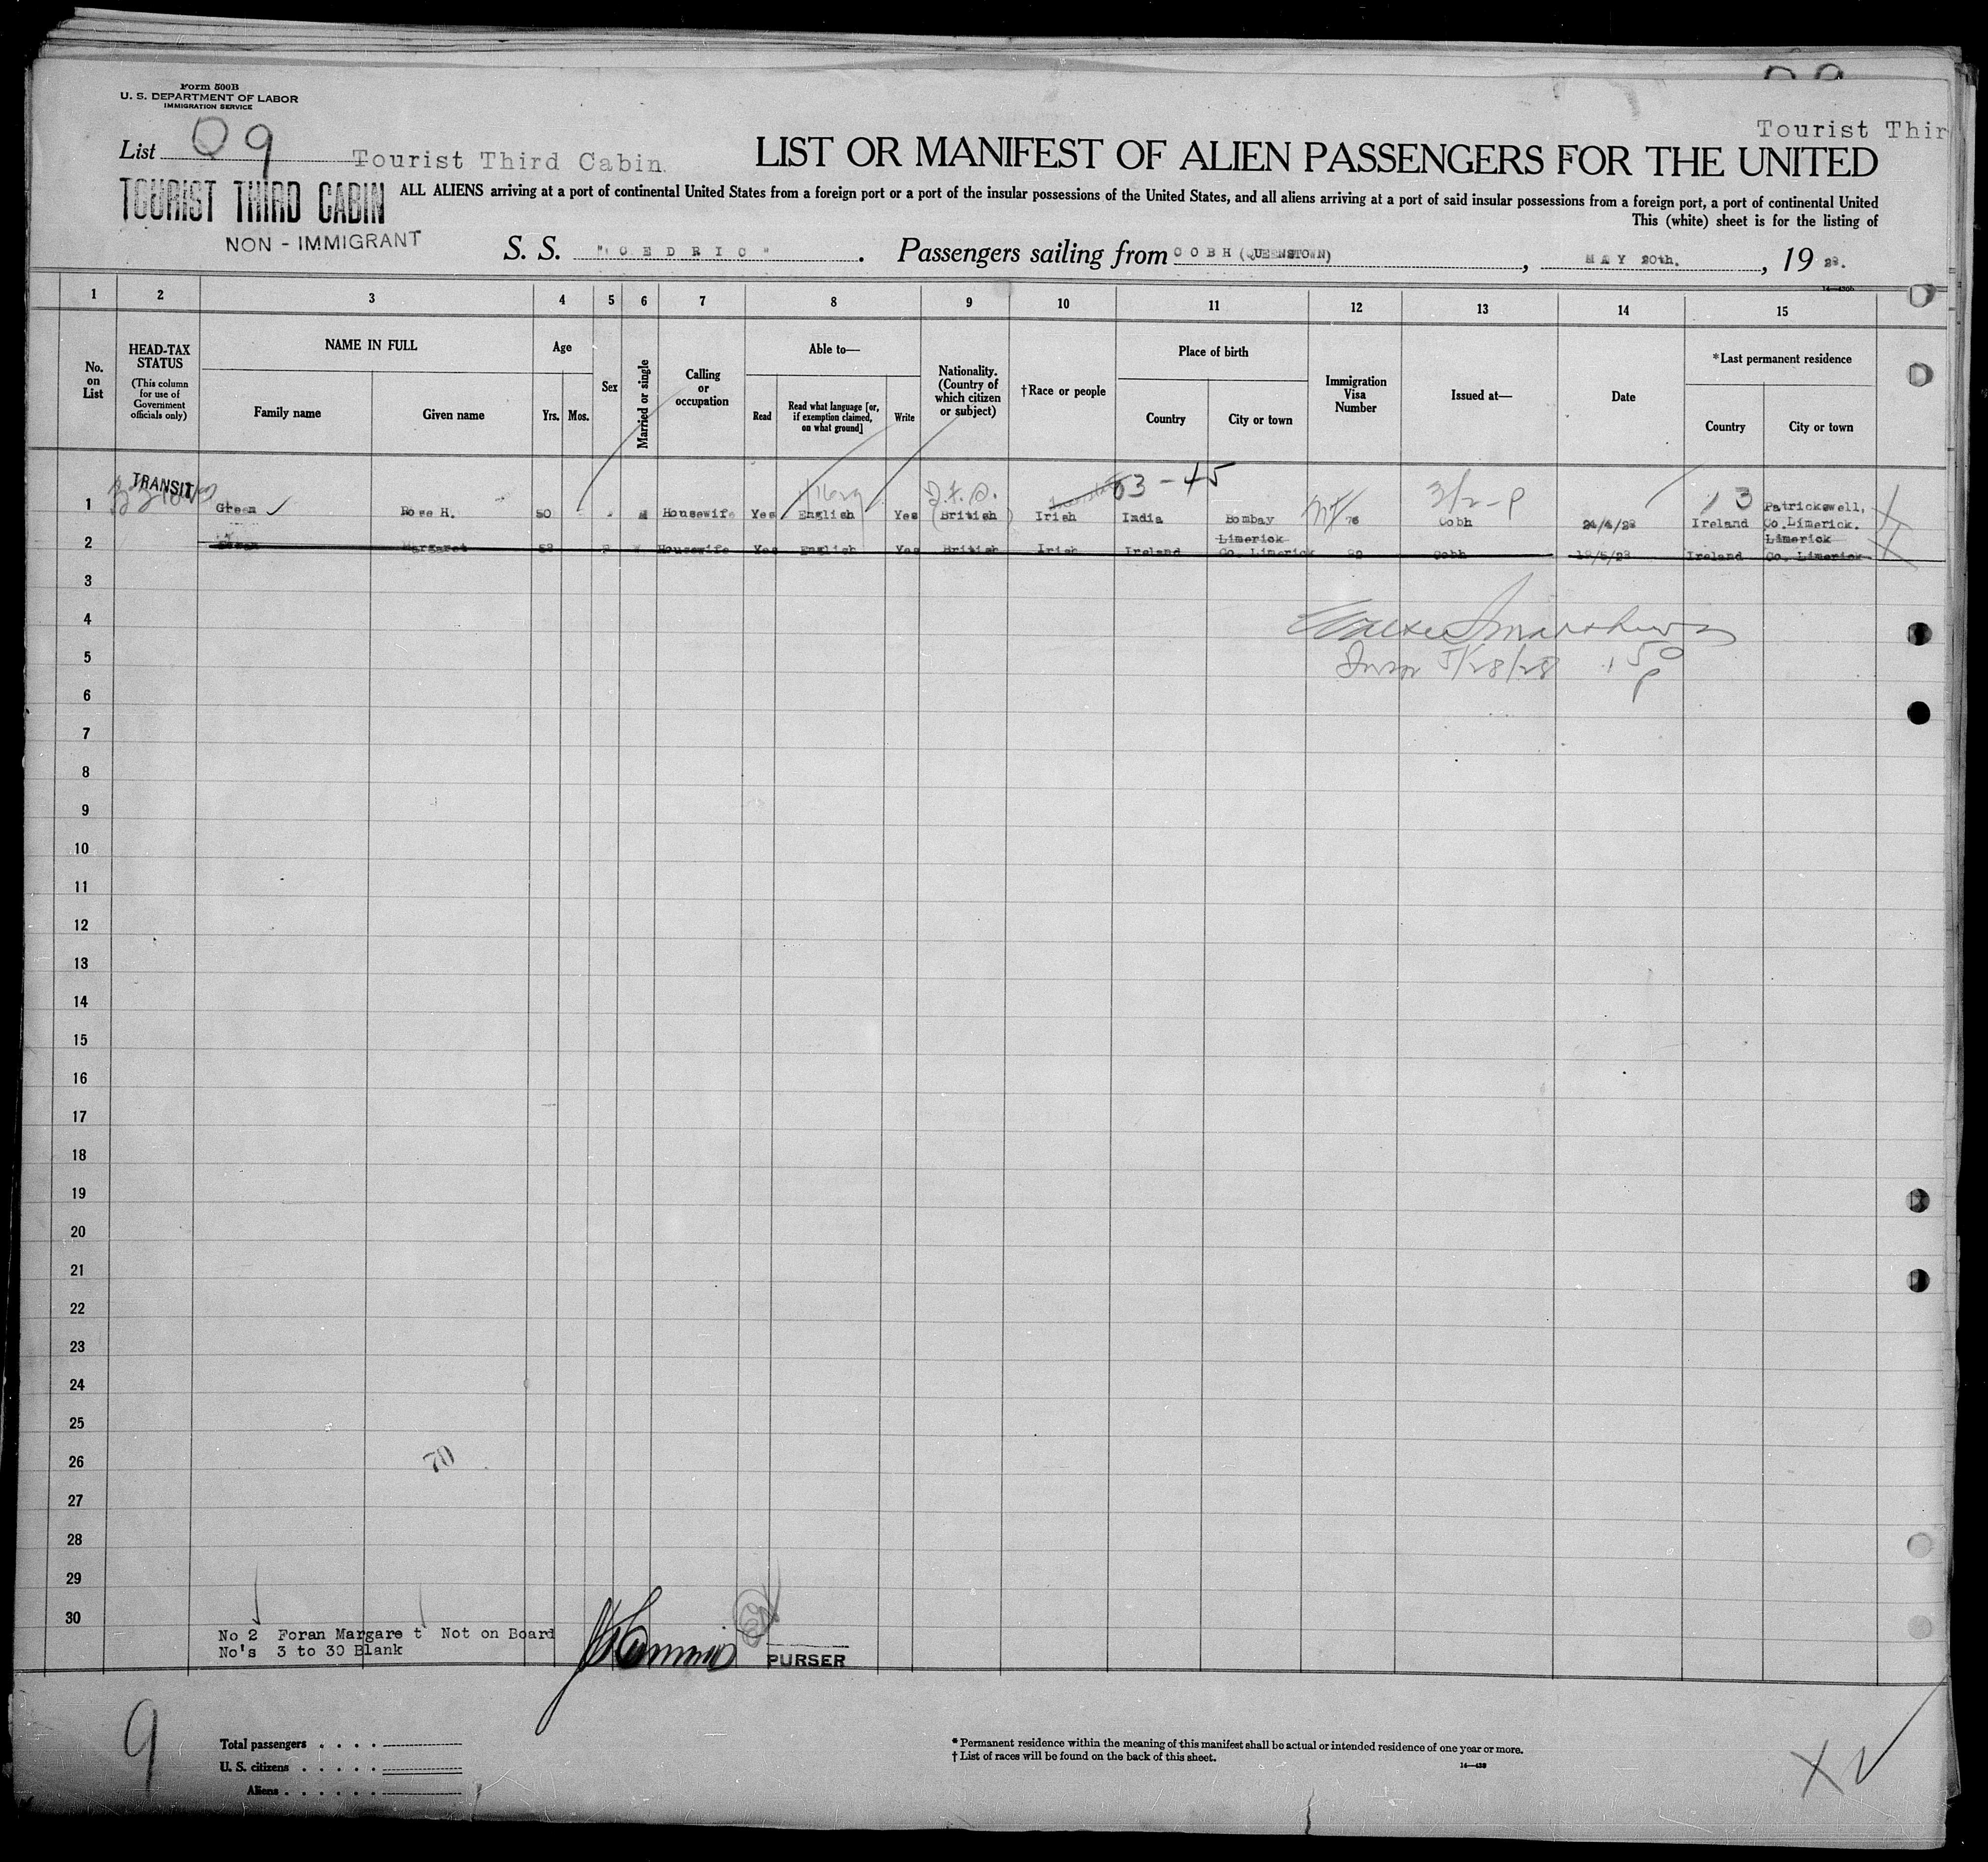 Form 500B
U. S. DEPARTMENT OF LABOR
IMMIGRATION SERVICE
List 09
Tourist Third Cabin
Tourist Thir
LIST OR MANIFEST OF ALIEN PASSENGERS FOR THE UNITED
TOURIST THIRD CABIN
ALL ALIENS arriving at a port of continental United States from a foreign port or a port of the insular possessions of the United States, and all aliens arriving at a port of said insular possessions from a foreign port, a port of continental United
This (white) sheet is for the listing of
NON - IMMIGRANT
S. S. "CEDRIC". Passengers sailing from COBH (QUEENSTOWN), MAY 20th., 19 28.
1 2 3 4 5 6 7 8 9 10 11 12 13 14 15
No. on List
HEAD-TAX STATUS
(This column for use of Government officials only)
NAME IN FULL
Family name
Given name
Age
Yrs.
Mos.
Sex
Married or single
Calling or occupation
Able to—
Read
Read what language [or, if exemption claimed, on what ground]
Write
Nationality. (Country of which citizen or subject)
†Race or people
Place of birth
Country
City or town
Immigration Visa Number
Issued at—
Date
*Last permanent residence
Country
City or town
TRANSIT
03 - 45
3/2-P
1 3
1 Green Rose H. 50 M Housewife Yes English Yes (British) Irish India Bombay 76 Cobh 24/4/28 Ireland Patrickswell, Co.Limerick.
2 Foran Margaret 58 F W Housewife Yes English Yes British Irish Ireland Limerick Co. Limerick 89 Cobh 18/5/28 Ireland Limerick Co. Limerick
3
4
5
5/28/28
6
7
8
9
10
11
12
13
14
15
16
17
18
19
20
21
22
23
24
25
26
70
27
28
29
30
No 2 Foran Margare t Not on Board
No's 3 to 30 Blank
PURSER
9
Total passengers
U. S. citizens
Aliens
* Permanent residence within the meaning of this manifest shall be actual or intended residence of one year or more.
† List of races will be found on the back of this sheet.
14—438
X